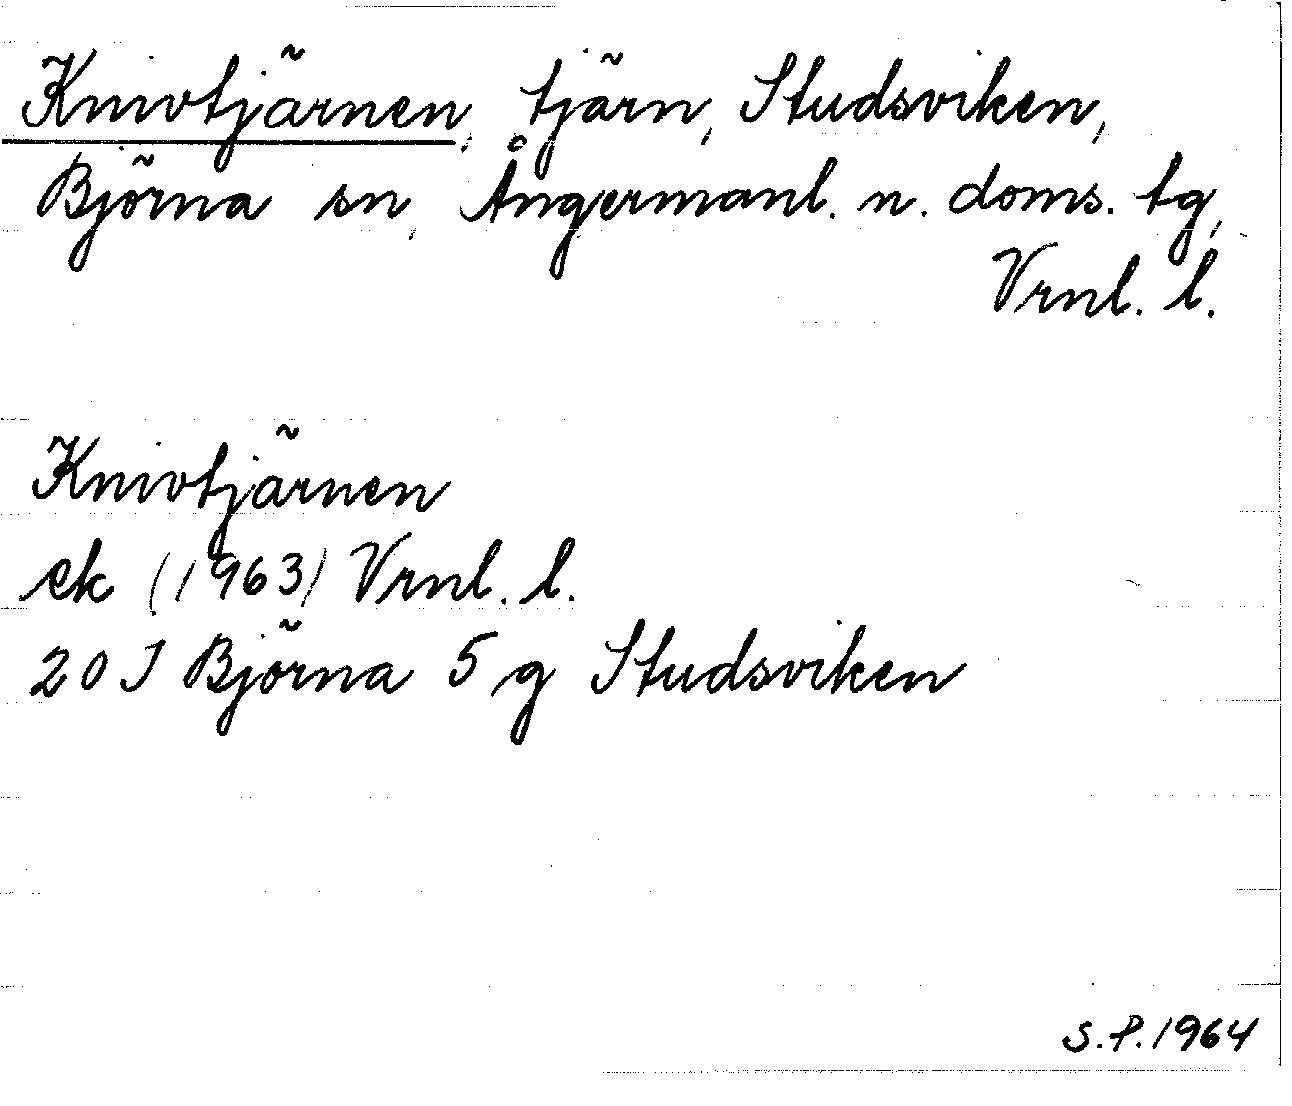 Knivtjärnen, tjärn, Studsviken,
Björna sn, Ångermanl. n. doms. tg,
Vrnl. l.
Knivtjärnen
ek (1963) Vrnl. l.
20 J Björna 5 g Studsviken
S.P. 1964